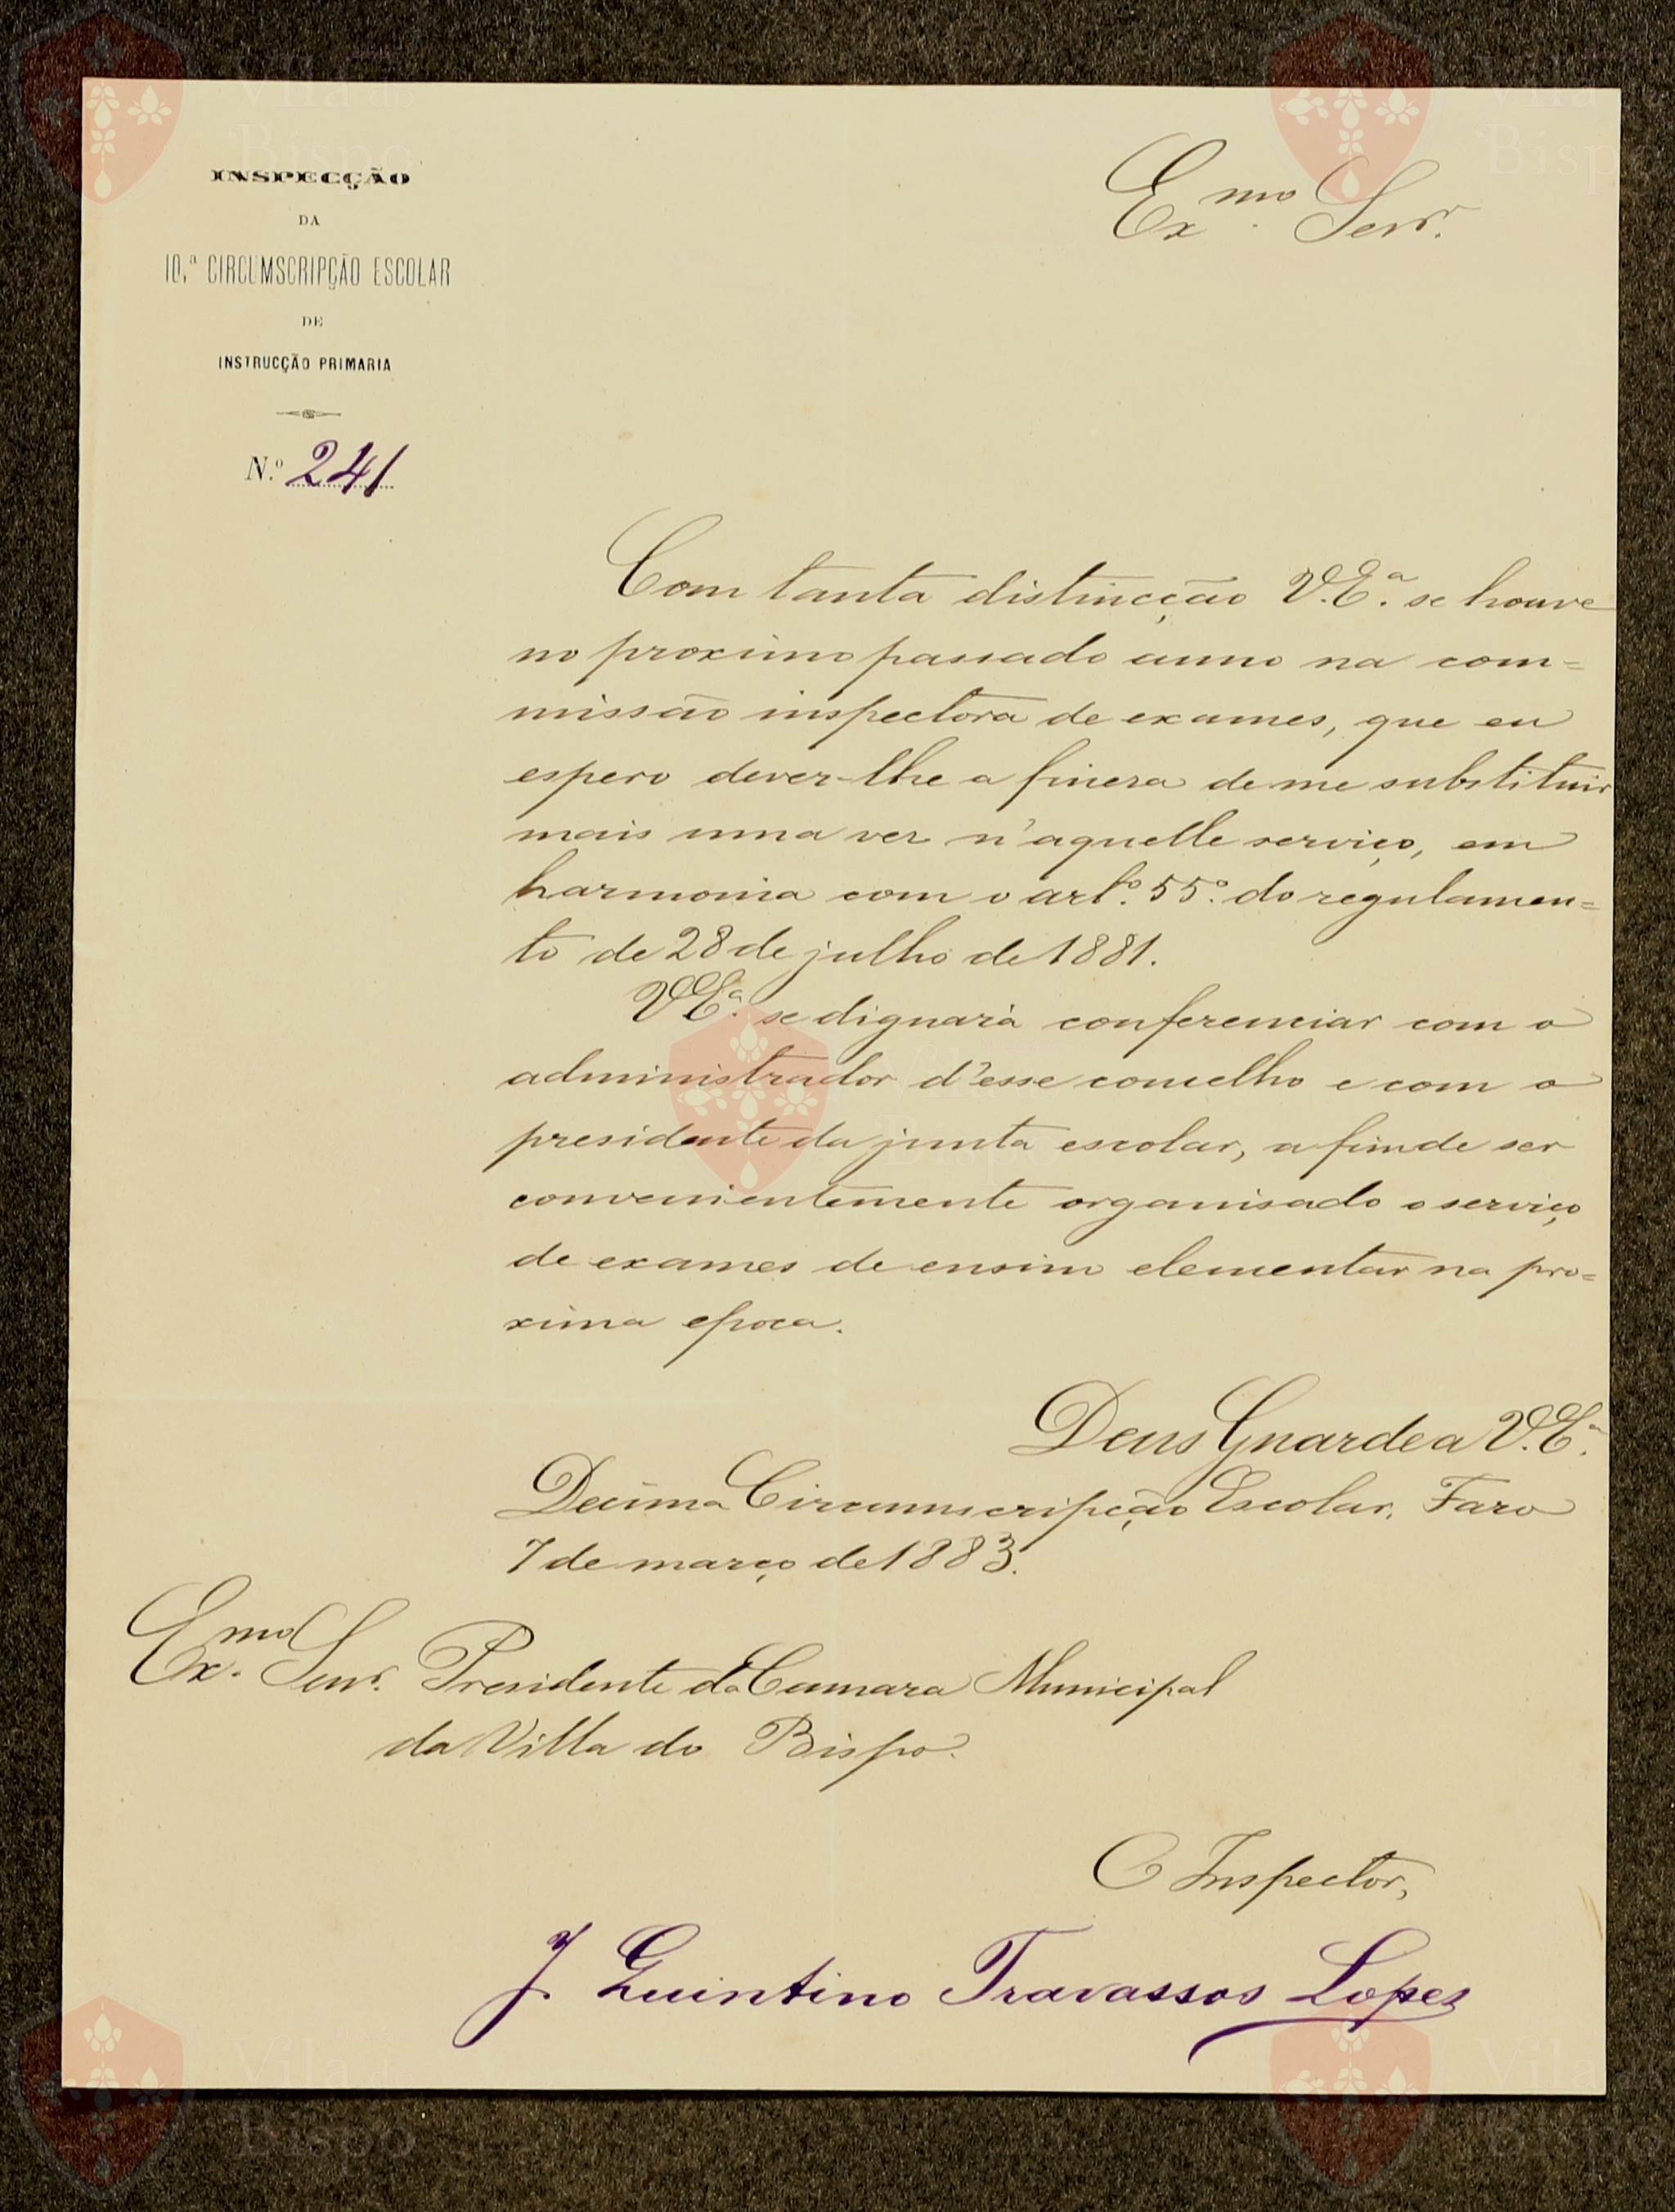 INSPECÇÃO
DA
10.ª CIRCUMSCRIPÇÃO ESCOLAR
DE
INSTRUCÇÃO PRIMARIA
N.º 241
Ex.mo Senr.
Com tanta distincção V.E.ª se houve
no proximo passado anno na com=
missão inspectora de exames, que eu
espero dever-lhe a fineza de me substituir
mais uma vez n'aquelle serviço, em
harmonia com o art.º 55.º do regulamen=
to de 28 de julho de 1881.
V.E.ª se dignará conferenciar com o
administrador d'esse concelho e com o
presidente da junta escolar, a fim de ser
convenientemente organisado o serviço
de exames de ensino elementar na pro=
xima epoca.
Deus Guarde a V.E.ª
Decima Circumscripção Escolar, Faro
7 de março de 1883.
Ex.mo Senr. Presidente da Camara Municipal
da Villa do Bispo.
O Inspector,
J. Quintino Travassos Lopes
Vila do
Bispo